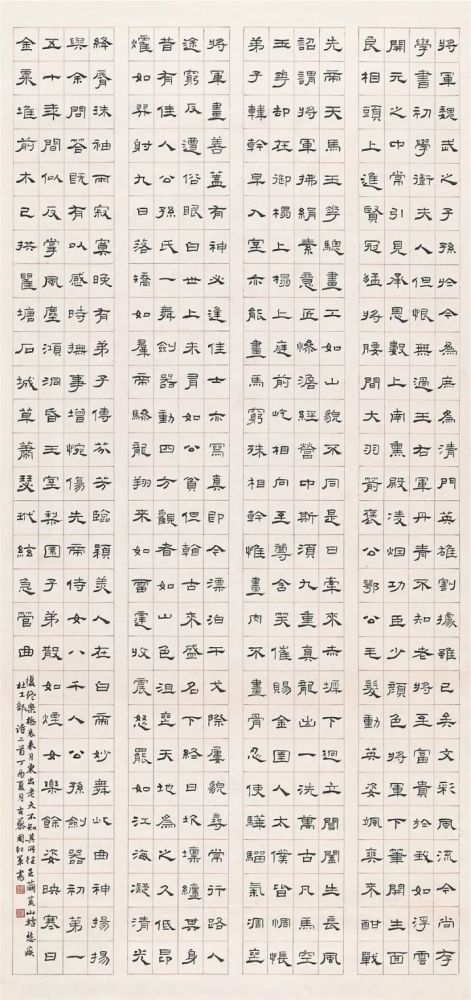 將軍魏武之子孫於今為庶為清門英雄割據雖已矣文彩風流今尚存
學書初學衛夫人但恨無過王右軍丹青不知老將至富貴於我如浮雲
開元之中常引見承恩數上南熏殿凌烟功臣少顏色將軍下筆開生面
良相頭上進賢冠猛將腰間大羽箭褒公鄂公毛髮動英姿颯爽來酣戰
先帝天馬玉華驄畫工如山貌不同是日牽來赤墀下迥立閶闔生長風
詔謂將軍拂絹素意匠慘澹經營中斯須九重真龍出一洗萬古凡馬空
玉華卻在御榻上榻上庭前屹相向至尊含笑催賜金圉人太僕皆惆悵
弟子韓幹早入室亦能畫馬窮殊相幹惟畫肉不畫骨忍使驊騮氣凋喪
將軍畫善蓋有神必逢佳士亦寫真即今漂泊干戈際屢貌尋常行路人
途窮反遭俗眼白世上未有如公貧但看古來盛名下終日坎壈纏其身
昔有佳人公孫氏一舞劍器動四方觀者如山色沮喪天地為之久低昂
㸌如羿射九日落矯如羣帝驂龍翔來如雷霆收震怒罷如江海凝清光
絳脣珠袖兩寂寞晚有弟子傳芬芳臨潁美人在白帝妙舞此曲神揚揚
與余問答既有以感時撫事增惋傷先帝侍女八千人公孫劍器初第一
五十年間似反掌風塵澒洞昏王室梨園子弟散如煙女樂餘姿映寒日
金粟堆前木已拱瞿塘石城草蕭瑟玳絃急管曲
復終樂極哀來月東出老夫不知其所往足繭荒山轉愁疾
杜工部詩二首丁酉夏月古周紅軍書